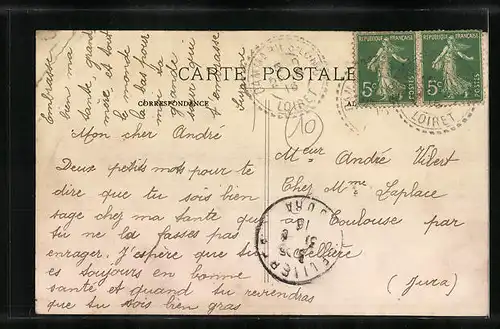 CARTE POSTALE
CORRESPONDANCE
Mon cher André
Deux petits mots pour te
dire que tu sois bien
sage chez ma tante que
tu ne la fasses pas
enrager. J'espère que tu
es toujours en bonne
santé et quand tu reviendras
que tu sois bien gras
Embrasse
bien ma
tante, grand
mère et tout
le monde
là bas pour
moi ta
grande
sœur qui
t'embrasse
Suzanne
REPUBLIQUE FRANÇAISE
5c
POSTES
REPUBLIQUE FRANÇAISE
5c
POSTES
LOIRET
LOIRET
10
Meur André Vibert
Chez Mme Laplace
à Toulouse par
Sellières
(Jura)
SELLIERES
JURA